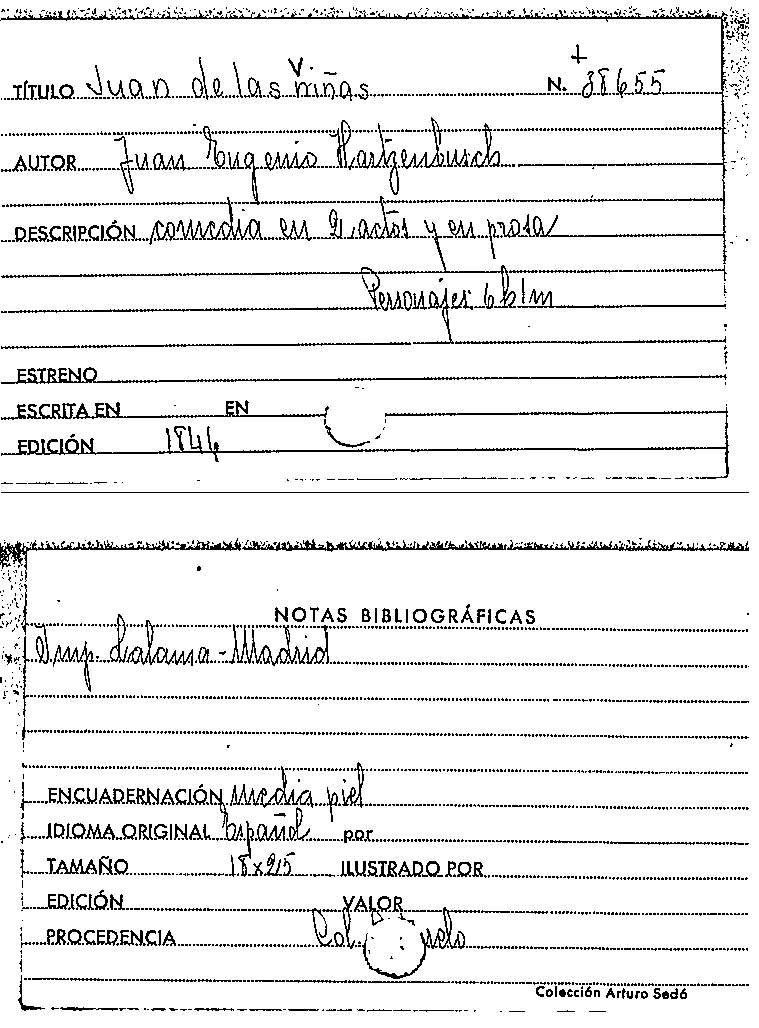 TÍTULO Juan de las Viñas N. 38655
AUTOR Juan Eugenio Hartzenbusch
DESCRIPCIÓN comedia en 2 actos y en prosa
Personajes: 6 h 1 m
ESTRENO
ESCRITA EN EN
EDICIÓN 1844
NOTAS BIBLIOGRÁFICAS
Imp. Lalama - Madrid
ENCUADERNACIÓN media piel
IDIOMA ORIGINAL Español por
TAMAÑO 18x25 ILUSTRADO POR
EDICIÓN VALOR
PROCEDENCIA Col.
Colección Arturo Sedó